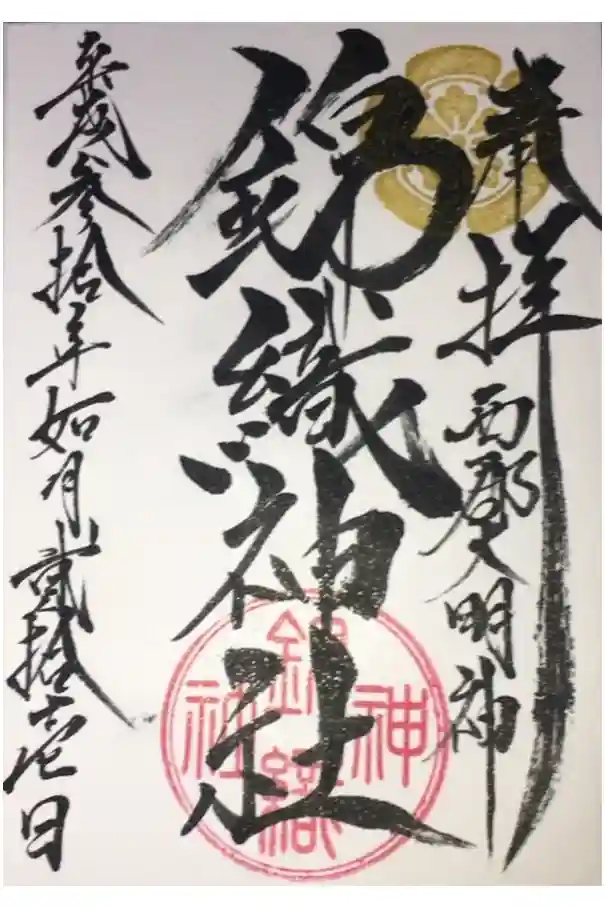 奉拝
西郡大明神
錦織神社
平成参拾年如月貳拾壱日
錦織神社